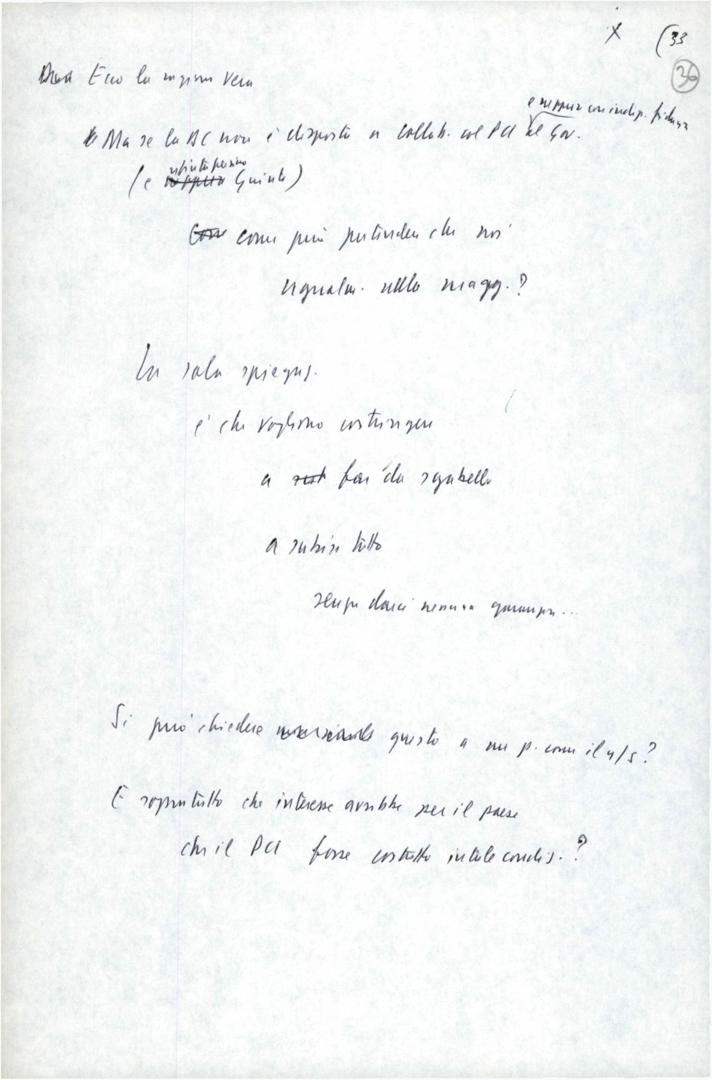 x (33
36
Ecco la ragione vera
e neppure con indip. fiducia
Ma se la DC non è disposta a collab. col PCI al Gov.
rifiuta persino
(e Giunte)
come può pretendere che noi
ugualm. nella magg.?
La sola spiegaz.
è che vogliono costringere
a far da sgabello
a subire tutto
senza darci nessuna garanzia...
Si può chiedere questo a un p. come il n/s?
E soprattutto che interesse avrebbe per il paese
che il PCI fosse costretto in tale condiz.?